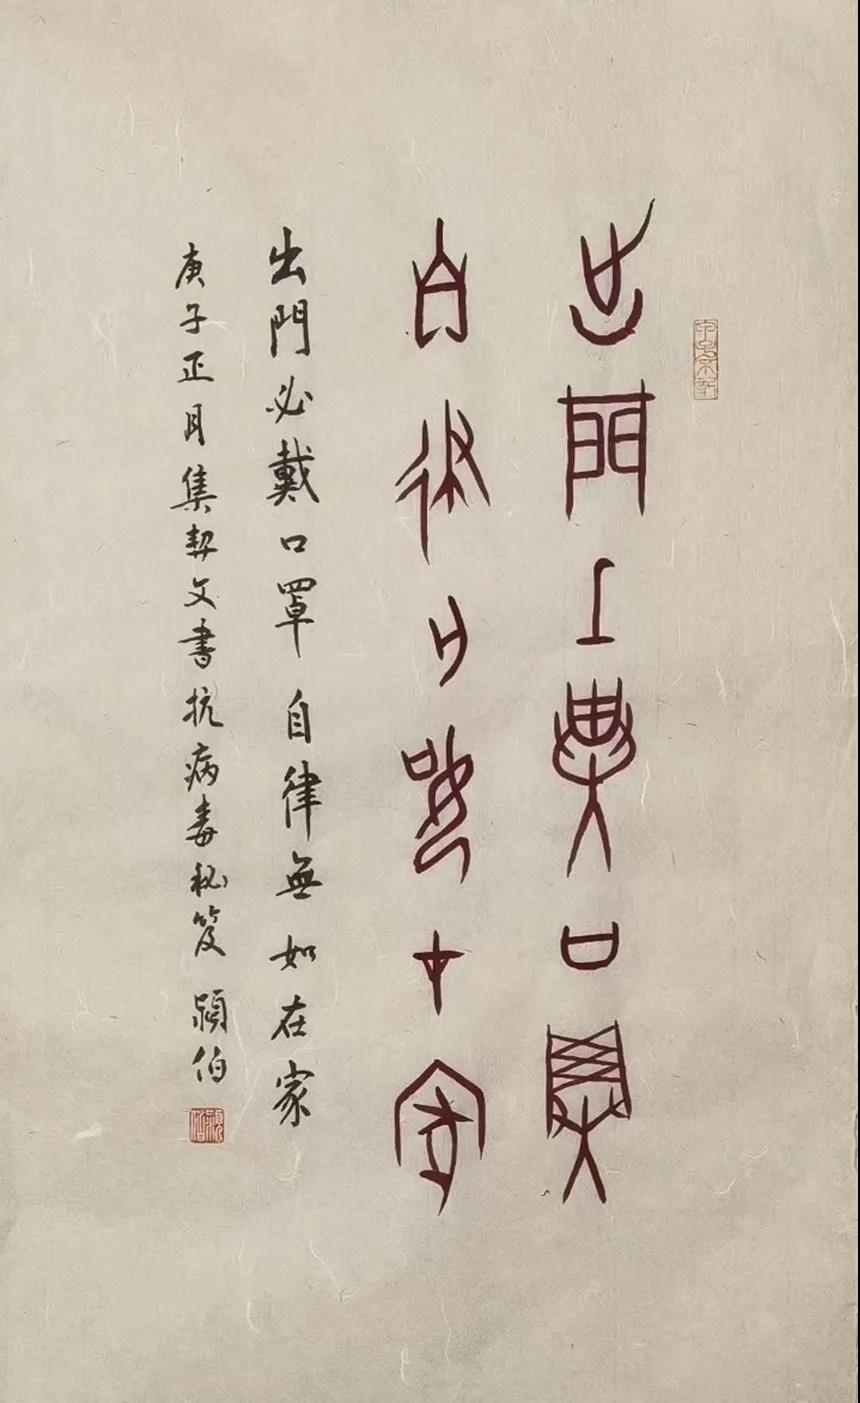 出門必戴口罩
自律無如在家
出門必戴口罩 自律無如在家
庚子正月集契文書抗病毒秘笈 潁伯